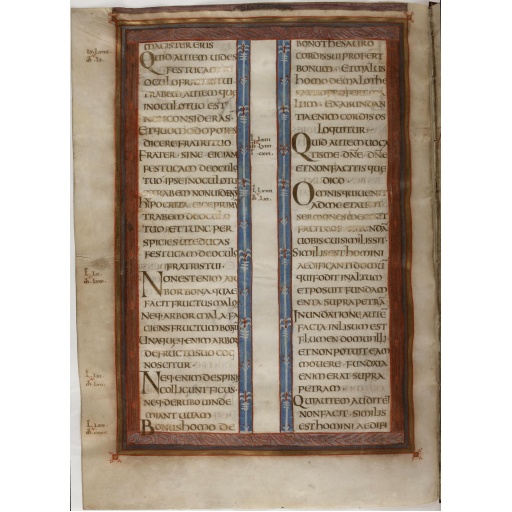 MAGISTER ERIS
QUID AUTEM UIDES
FESTUCAM
OCULO FRATRIS TUI
TRABEM AUTEM QUE
IN OCULO TUO EST
NON CONSIDERAS
ET QUOMODO POTES
DICERE FRATRI TUO
FRATER SINE EICIAM
FESTUCAM DE OCULO
TUO IPSE IN OCULO TUO
TRABEM NON UIDENS
HYPOCRITA EICE PRIMU
TRABEM DE OCULO
TUO ET TUNC PER
SPICIES UT EDUCAS
FESTUCAM DE OCULO
FRATRIS TUI
NON EST ENIM AR
BOR BONA QUAE
FACIT FRUCTUS MALOS
NEQ ARBOR MALA FA
CIENS FRUCTUM BONU
UNA QUAEQ ENIM ARBOR
DE FRUCTU SUO COG
NOSCITUR
NEQ ENIM DE SPINIS
COLLIGUNT FICUS
NEQ DE RUBO UINDE
MIANT UUAM
BONUS HOMO DE
BONO THESAURO
CORDIS SUI PROFERT
BONUM ET MALUS
HOMO DE MALO THE
SAURO PROFERT MA
LUM EX ABUNDAN
TIA ENIM CORDIS OS
LOQUITUR
QUID AUTEM UOCA
TIS ME DNE DNE
ET NON FACITIS QUE
DICO
OMNIS QUI UENIT
AD ME ET AUDIT
SERMONES MEOS ET
FACIT EOS
UOBIS CUI SIMILIS SIT
SIMILIS EST HOMINI
AEDIFICANTI DOMU
QUI FODIT IN ALTUM
ET POSUIT FUNDAM
ENTA SUPRA PETRA
INUNDATIONE AUTE
FACTA INLISUM EST
FLUMEN DOMUI ILLI
ET NON POTUIT EAM
MOUERE FUNDATA
ENIM ERAT SUPRA
PETRAM
QUI AUTEM AUDIT ET
NON FACIT SIMILIS
EST HOMINI AEDIFI